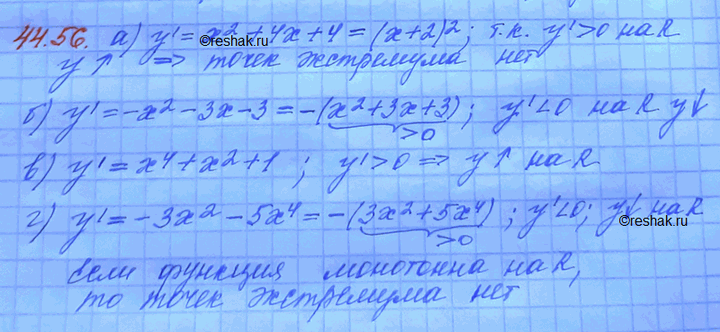 44.56. а) y' = x² + 4x + 4 = (x+2)²; т.к. y' > 0 на R
©reshak.ru
y ↑ => точек экстремума нет
б) y' = -x² - 3x - 3 = -(x² + 3x + 3); y' < 0 на R y↓
>0
в) y' = x⁴ + x² + 1 ; y' > 0 => y↑ на R
г) y' = -3x² - 5x⁴ = -(3x² + 5x⁴) ; y' < 0; y↓ на R
>0
©reshak.ru
Если функция монотонна на R,
то точек экстремума нет